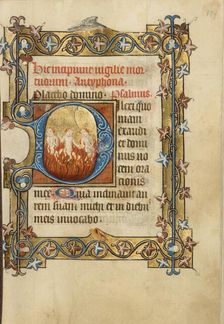 Hic incipiunt vigilie mor
tuorum. Antyphona.
Placebo domino. Psalmus.
Dilexi quo
niam
exaudi
et domi
nus vo
cem ora
cionis
mee. Quia inclinavit au
rem suam michi et in dieb
meis invocabo.